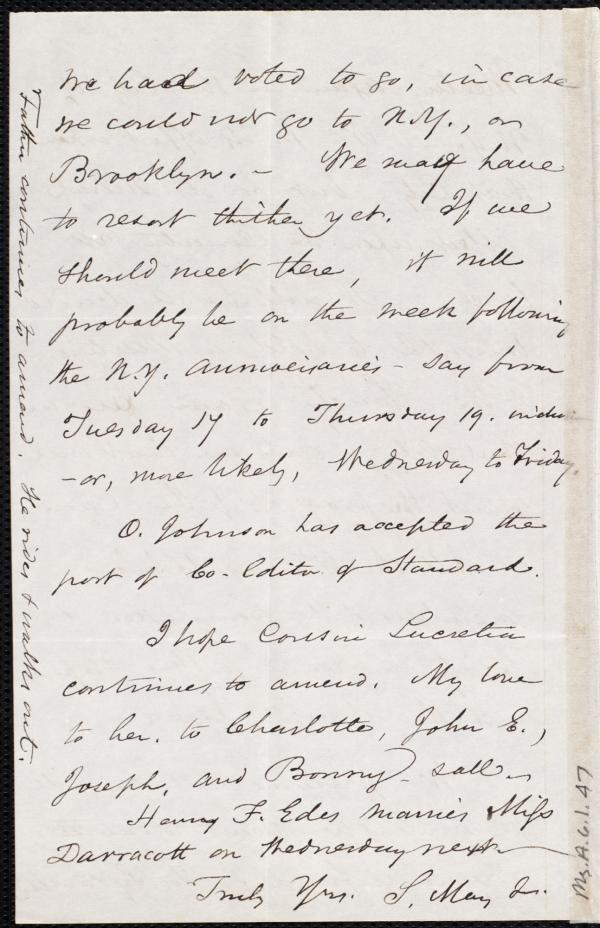 We had voted to go, in case
we could not go to N.Y., or
Brooklyn. – We may have
to resort thither yet. If we
should meet there, it will
probably be on the week following
the N.Y. anniversaries – say from
Tuesday 17 to Thursday 19. inclu
– or, more likely, Wednesday to Friday.
O. Johnson has accepted the
post of Co-Editor of Standard.
I hope Cousin Lucretia
continues to amend. My love
to her, to Charlotte, John E.,
Joseph, and Bonny – & all –
Henry F. Edes marries Miss
Darracott on Wednesday next –
Truly Yrs. S. May Jr.
Father continues to amend. He rides & walks out.
Ms. A. 6. 1. 47